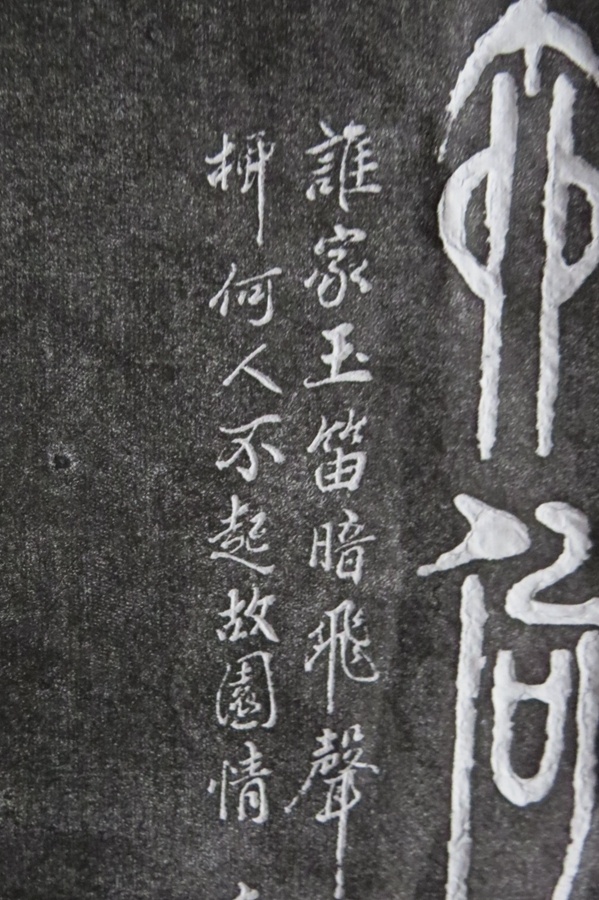 誰家玉笛暗飛聲
柳何人不起故園情